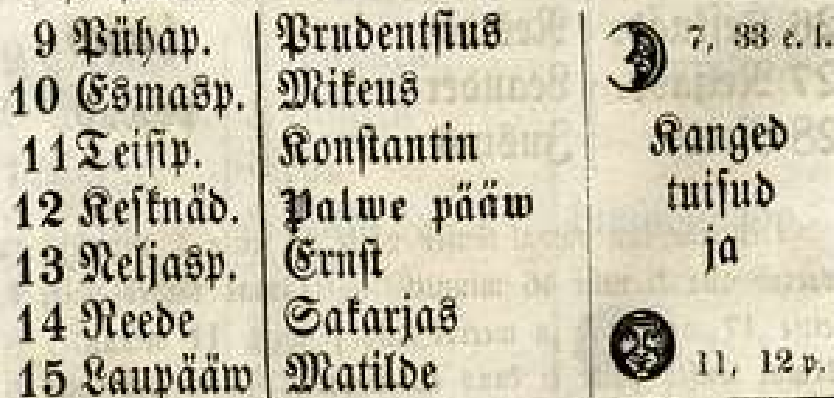 9 Pühap. Prudentsius 7, 33 e. l.
10 Esmasp. Mikeus
11 Teisip. Konstantin Kanged
12 Kesknäd. Palwe pääw tuisud
13 Neljasp. Ernst ja
14 Reede Sakarjas
15 Laupääw Matilde 11, 12 p.